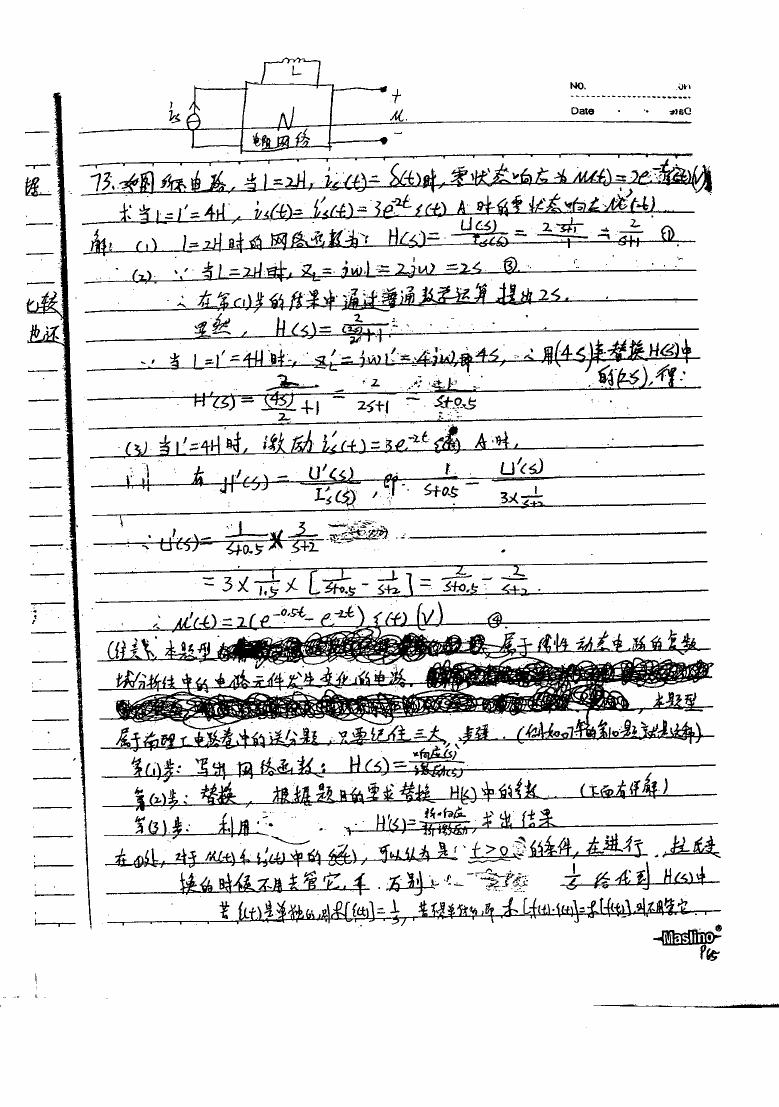 L
NO.
Date
is
N
电阻网络
+
u
-
73. 如图所示电路, 当L=2H, is(t)=δ(t)时, 零状态响应为u(t)=2e
求当L=L'=4H, is(t)=i's(t)=3e^{-2t}ε(t) A 时的零状态响应u'(t)
解: (1) L=2H时的网络函数为: H(s)=U(s)/Is(s)= =2/(s+1) ①
(2) ∵当L=2H时, ZL=jωL=2jω=2s ③
∴在第(1)步的结果中通过普通数学运算提出2s.
比较
显然, H(s)=2/((2s)/2+1)
也还
∵当L=L'=4H时, Z'L=jωL'=4jω,即4S, ∴用(4S)来替换H(s)中
的(2S), 得:
H'(s)=2/((4s)/2+1)=2/(2s+1)=1/(s+0.5)
(3) 当L'=4H时, 激励i's(t)=3e^{-2t}ε(t) A时,
有 H'(s)=U'(s)/I's(s), 即: 1/(s+0.5)=U'(s)/(3×1/(s+2))
∴U'(s)=1/(s+0.5)×3/(s+2)
=3×1/1.5×[1/(s+0.5)-1/(s+2)]=2/(s+0.5)-2/(s+2).
∴u'(t)=2(e^{-0.5t}-e^{-2t})ε(t) (V) ④
(注意: 本题型 属于线性动态电路的复数
域分析法中的电路元件发生变化的电路. 本题型
属于南理工电路卷中的送分题, 只要记住三大步骤. (例如07年的第10题就是这种)
第(1)步: 写出网络函数: H(s)=响应(s)/激励(s)
第(2)步: 替换, 根据题目的要求替换H(s)中的参数. (下面有详解)
第(3)步: 利用 H'(s)=新响应/新激励, 求出结果
在①处, 对于u(t)和is(t)中的ε(t), 可以认为是t>0的条件, 在进行拉氏变
换的时候不用去管它, 千万别 1/s 给代到H(s)中
若ε(t)是单独的, 则ℒ[ε(t)]=1/s, 若不是单独的, 即ℒ[f(t)·ε(t)]=ℒ[f(t)], 则不用管它
Maslino®
P65